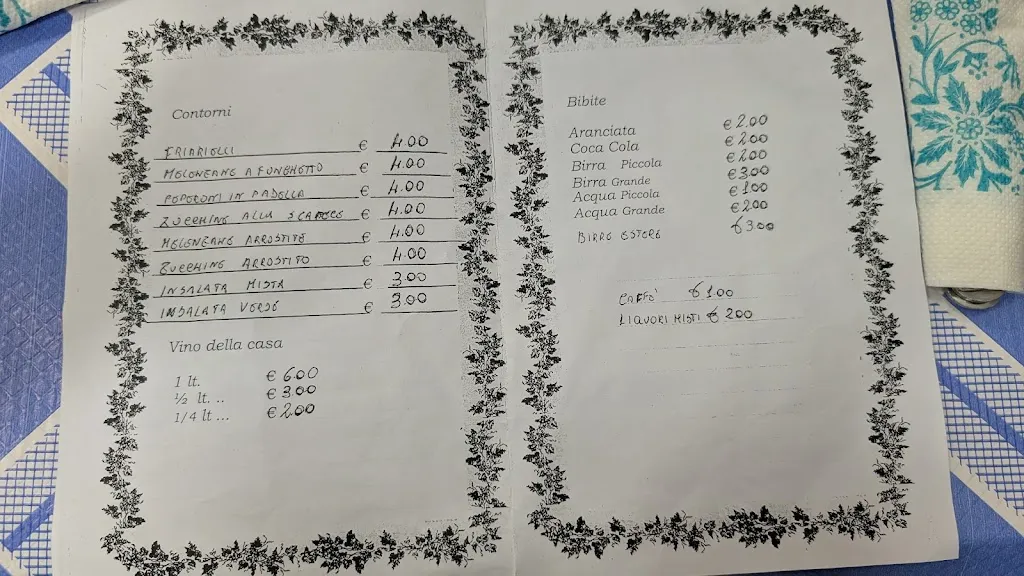 Contorni
FRIARIELLI € 4.00
MELONEANE A FUNGHETTO € 4.00
POPORONI IN PADELLA € 4.00
ZUCCHINE ALLA SCAPECE € 4.00
MELENEANE ARROSTITE € 4.00
ZUCCHINE ARROSTITO € 4.00
INSALATA MISTA € 3.00
INSALATA VERDE € 3.00
Vino della casa
1 lt. € 6.00
½ lt. .. € 3.00
1/4 lt ... € 2.00
Bibite
Aranciata € 2.00
Coca Cola € 2.00
Birra Piccola € 2.00
Birra Grande € 3.00
Acqua Piccola € 1.00
Acqua Grande € 2.00
BIRRE ESTERE € 3.00
CAFFE' € 1.00
LIQUORI MISTI € 2.00